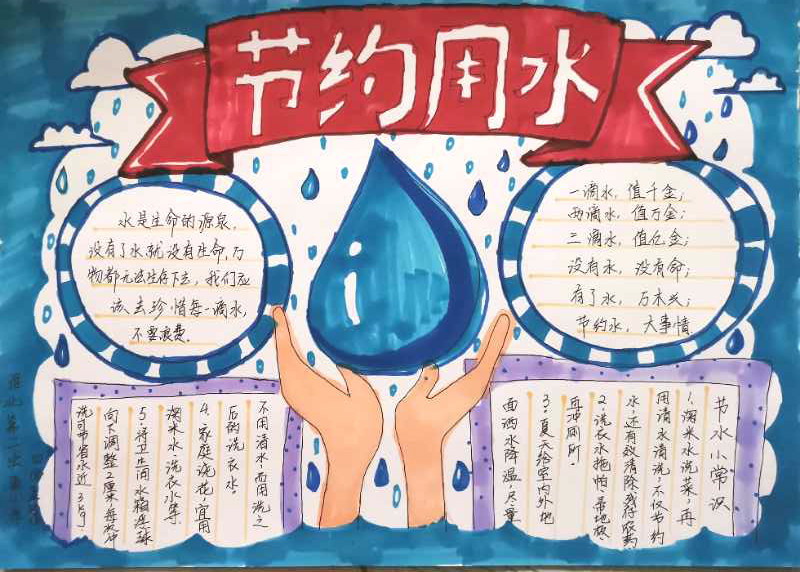 节约用水
水是生命的源泉，
没有了水就没有生命，万
物都无法生存下去，我们应
该去珍惜每一滴水，
不要浪费。
一滴水，值千金；
两滴水，值万金；
三滴水，值亿金；
没有水，没有命；
有了水，万木兴；
节约水，大事情
节水小常识
1、淘米水洗菜，再
用清水清洗，不仅节约
水，还有效清除残存农药
2、洗衣水拖帕、帚地板、
再冲厕所。
3、夏天给室内外地
面洒水降温，尽量
不用清水，而用洗之
后的洗衣水。
4、家庭浇花，宜用
淘米水、洗衣水等
5、将卫生间水箱浮球
向下调整2厘米，每次冲
洗可节省水近3kg
淮北第二实